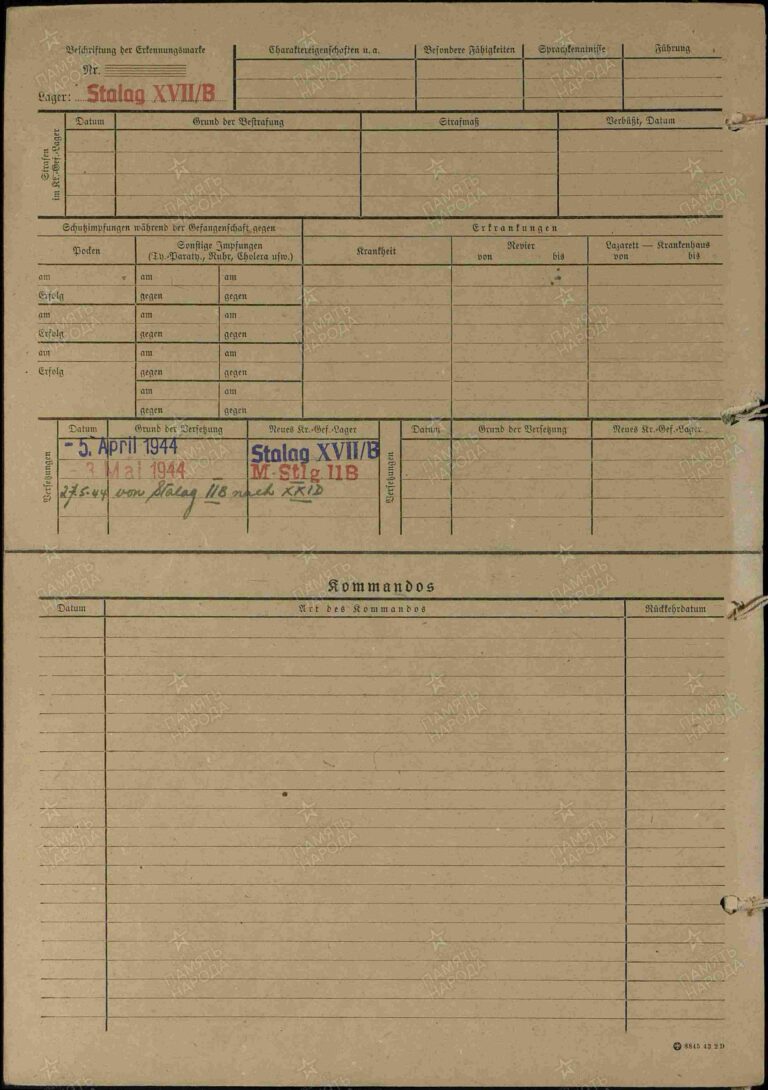 Beschriftung der Erkennungsmarke
Nr.
Lager: Stalag XVII/B
Charaktereigenschaften u. a.
Besondere Fähigkeiten
Sprachkenntnisse
Führung
Strafen
im Kr.-Gef.-Lager
Datum
Grund der Bestrafung
Strafmaß
Verbüßt, Datum
Schutzimpfungen während der Gefangenschaft gegen
Erkrankungen
Pocken
Sonstige Impfungen
(Ty.-Paraty., Ruhr, Cholera usw.)
Krankheit
Revier
von bis
Lazarett — Krankenhaus
von bis
am am am
Erfolg gegen gegen
am am am
Erfolg gegen gegen
am am am
Erfolg gegen gegen
am am
gegen gegen
Versetzungen
Datum Grund der Versetzung Neues Kr.-Gef.-Lager
- 5. April 1944 Stalag XVII/B
- 3 Mai 1944 M-Stlg IIB
27.5.44 von Stalag IIB nach XXID
Versetzungen
Datum Grund der Versetzung Neues Kr.-Gef.-Lager
Kommandos
Datum Art des Kommandos Rückkehrdatum
8845 42 2 D
ПАМЯТЬ
НАРОДА